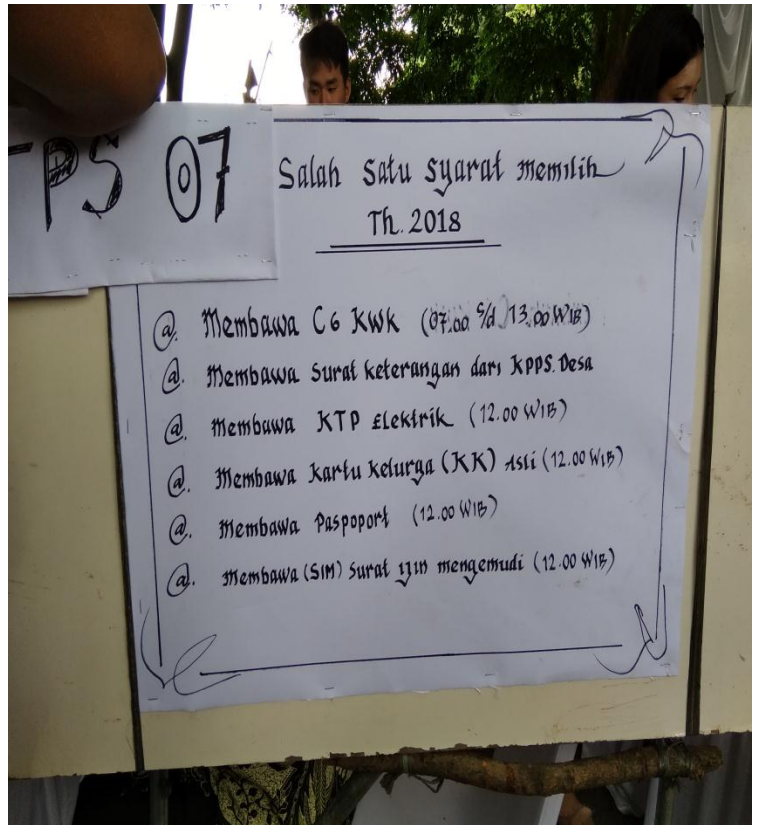 TPS 07
Salah satu syarat memilih
Th. 2018
@. Membawa C6 KWK (07.00 s/d 13.00 WIB)
@. Membawa Surat keterangan dari KPPS. Desa
@. Membawa KTP Elektrik (12.00 WIB)
@. Membawa Kartu kelurga (KK) Asli (12.00 WIB)
@. Membawa Paspoport (12.00 WIB)
@. Membawa (SIM) Surat ijin mengemudi (12.00 WIB)